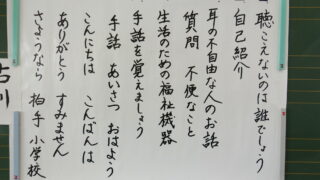 一 聴こえないのは誰でしょう
一 自己紹介
一 耳の不自由な人のお話
質問 不便なこと
生活のための福祉機器
手話を覚えましょう
手話 あいさつ おはよう
こんにちは こんばんは
ありがとう すみません
さようなら 拍手 小学校